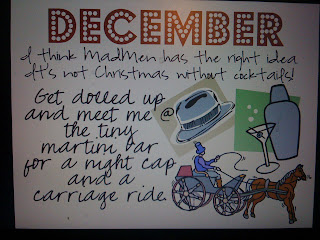 DECEMBER
I think MadMen has the right idea
It's not Christmas without cocktails!
Get dolled up
and meet me @
the tiny
martini bar
for a night cap
and a
carriage ride.